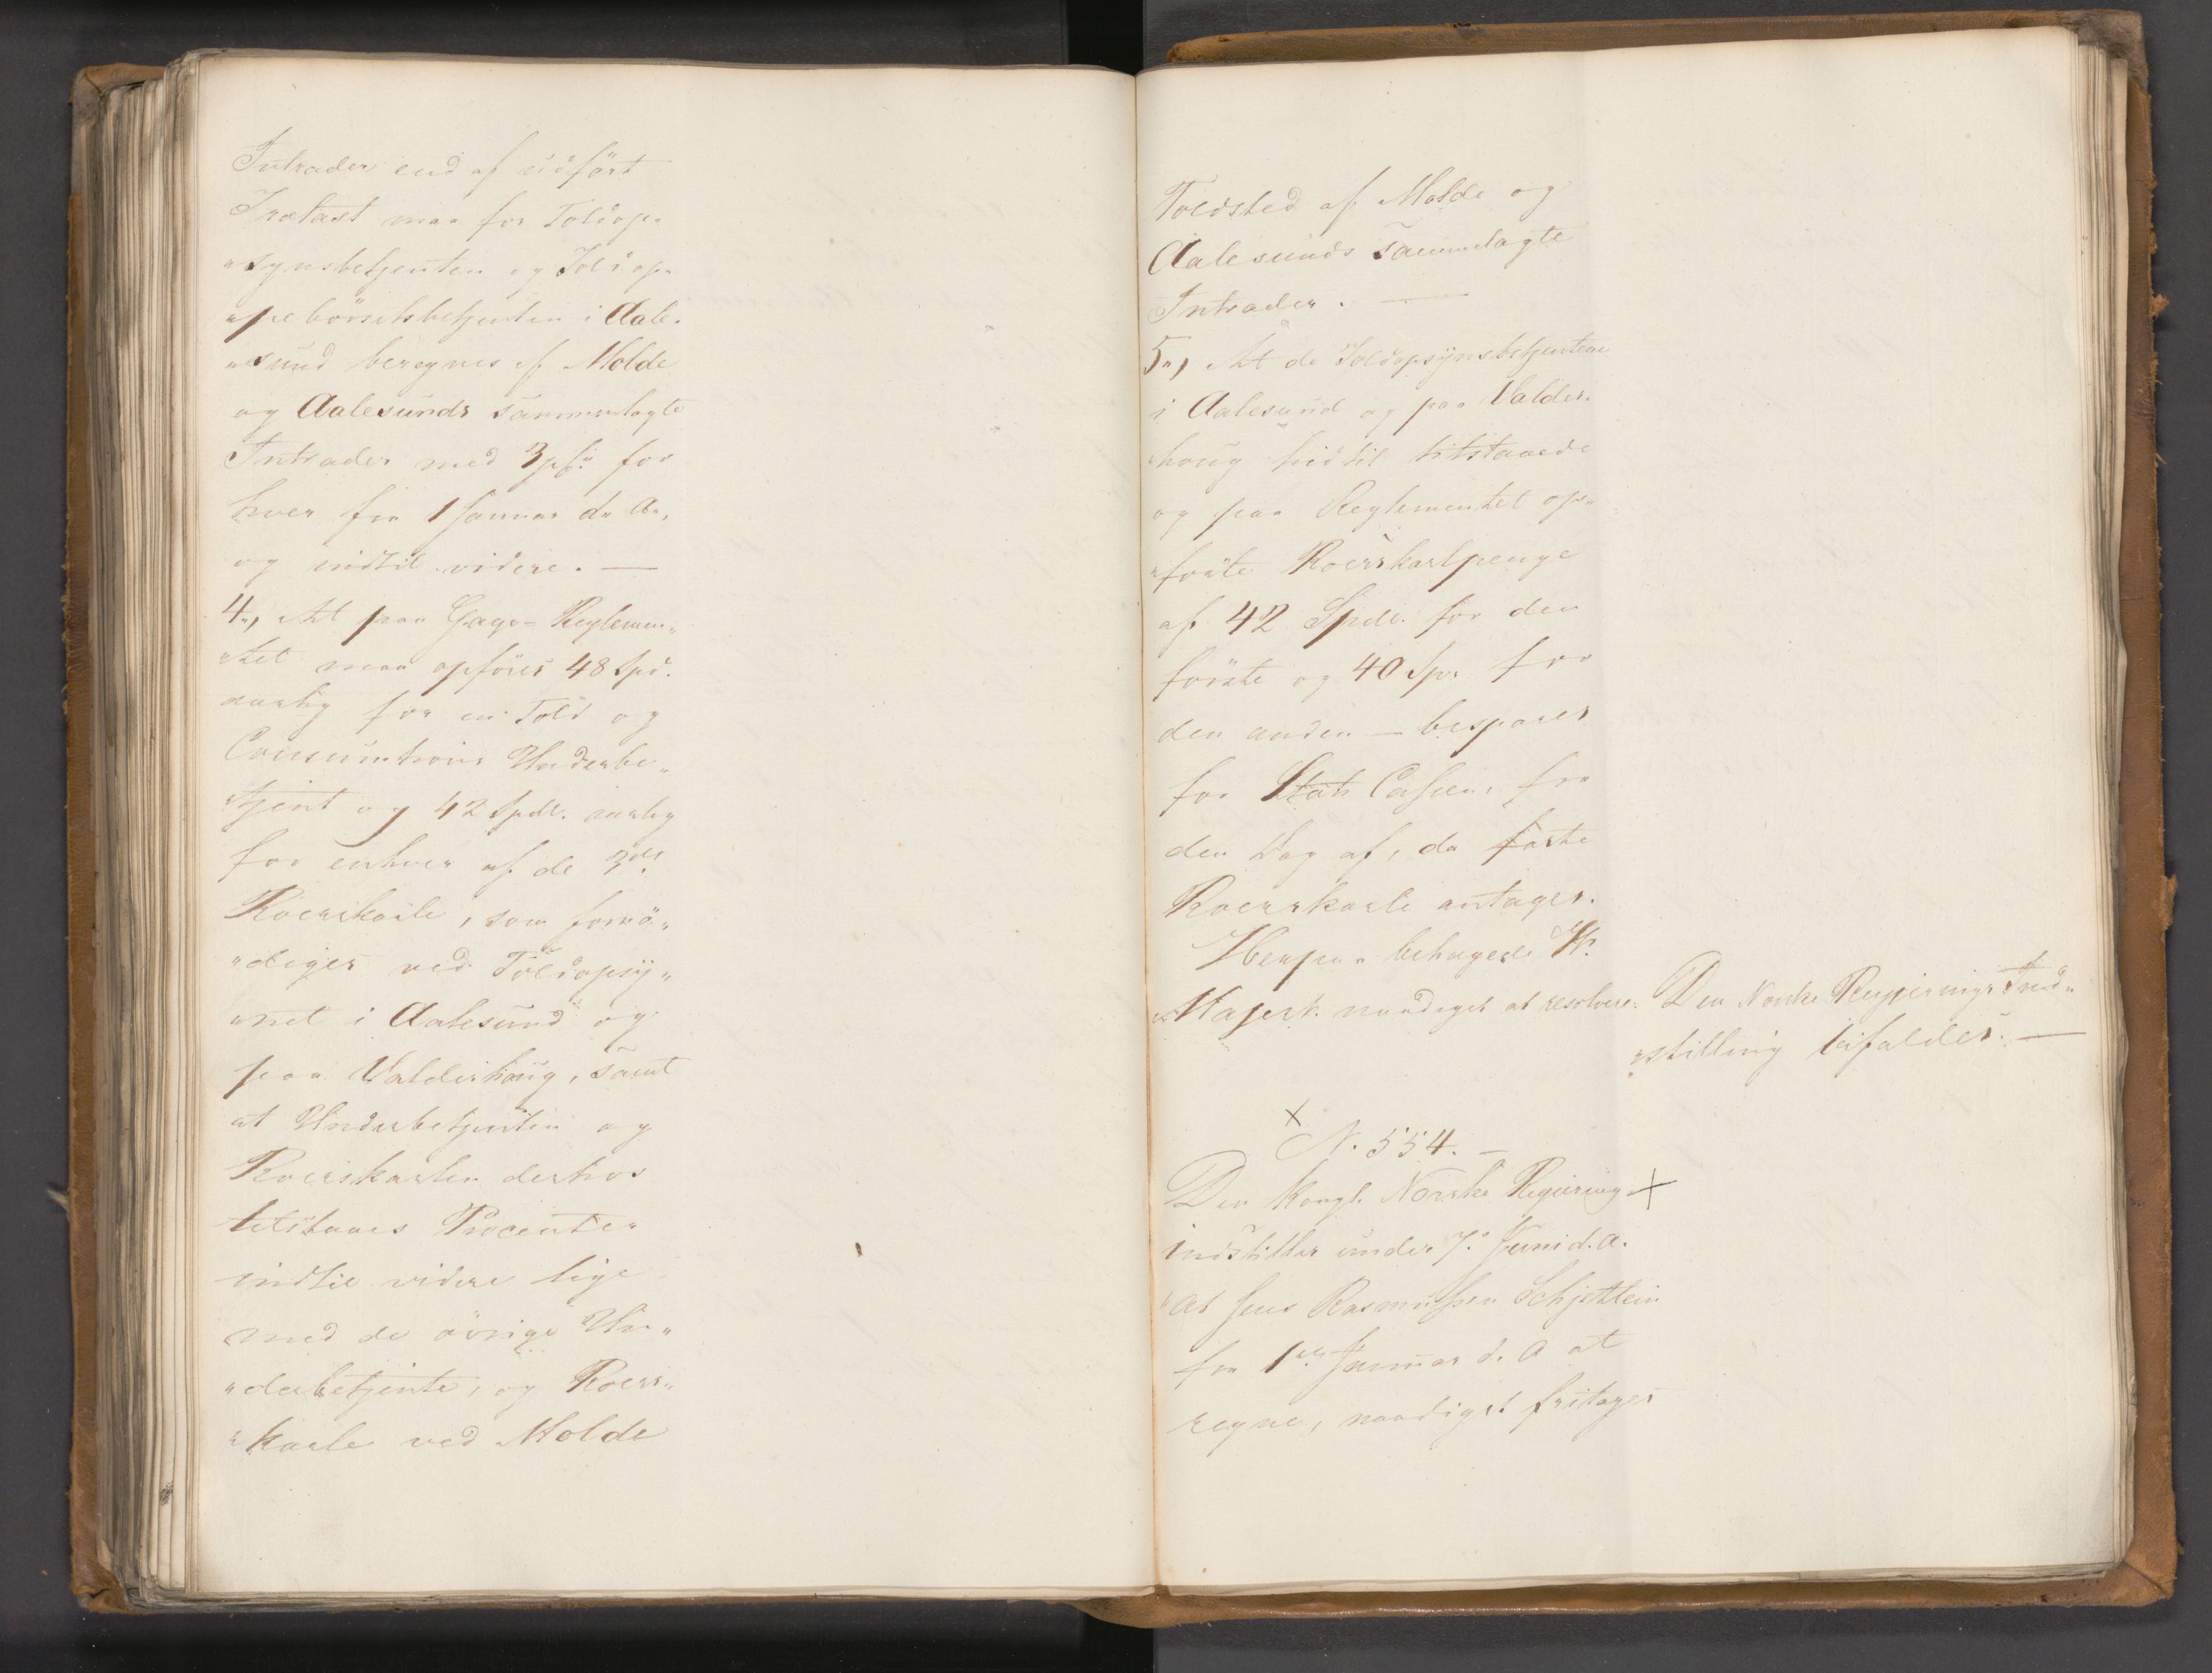 Intrader end af udført
Trælast maa for Toldop„
„synsbetjenten og Toldop„
„pebörselsbetjenten i Aale„
„sund beregnes af Molde
og Aalesunds sammenlagte
Intrader med 3 pC for
hver fra 1 Januar d. A.,
og indtil videre. —
4., At paa Gage-Reglemen„
„tet maa opföres 48 Spd.
aarlig for en Told og
Consumtions Underbe„
„tjent og 42 Spdl. aarlig
for enhver af de 3de
Roerskarle, som fornö„
„diges ved Toldopsy„
„net i Aalesund og
paa Valderhoug, samt
at Underbetjenten og
Roerskarlen derhos
tilstaaes Procenter
indtil videre lige
med de övrige Un„
„derbetjente, og Roers„
„karle ved Molde
Toldsted af Molde og
Aalesunds sammelagte
Intrader. —
5., At de Toldopsynsbetjentene
i Aalesund og paa Valder„
„houg hidtil tilstaaede
og paa Reglementet op„
„förte Roerskarlpenge
af 42 Spdl. for den
förste og 40 Sp. for
den anden — bespares
for Stats Cassen, fra
den Dag af, da faste
Roerskarle antages.
Herpaa behagede H.
Majest. naadigst at resolvere: Den Norske Regjerings Ind„
„stilling bifaldes. —
x
N. 554. —
Den Kongl. Norske Regjering x
indstiller under 7. Juni d. A.
„at Jens Rasmussen Schjettlein
fra 1ste Januar d. A at
regne, naadigst fritages